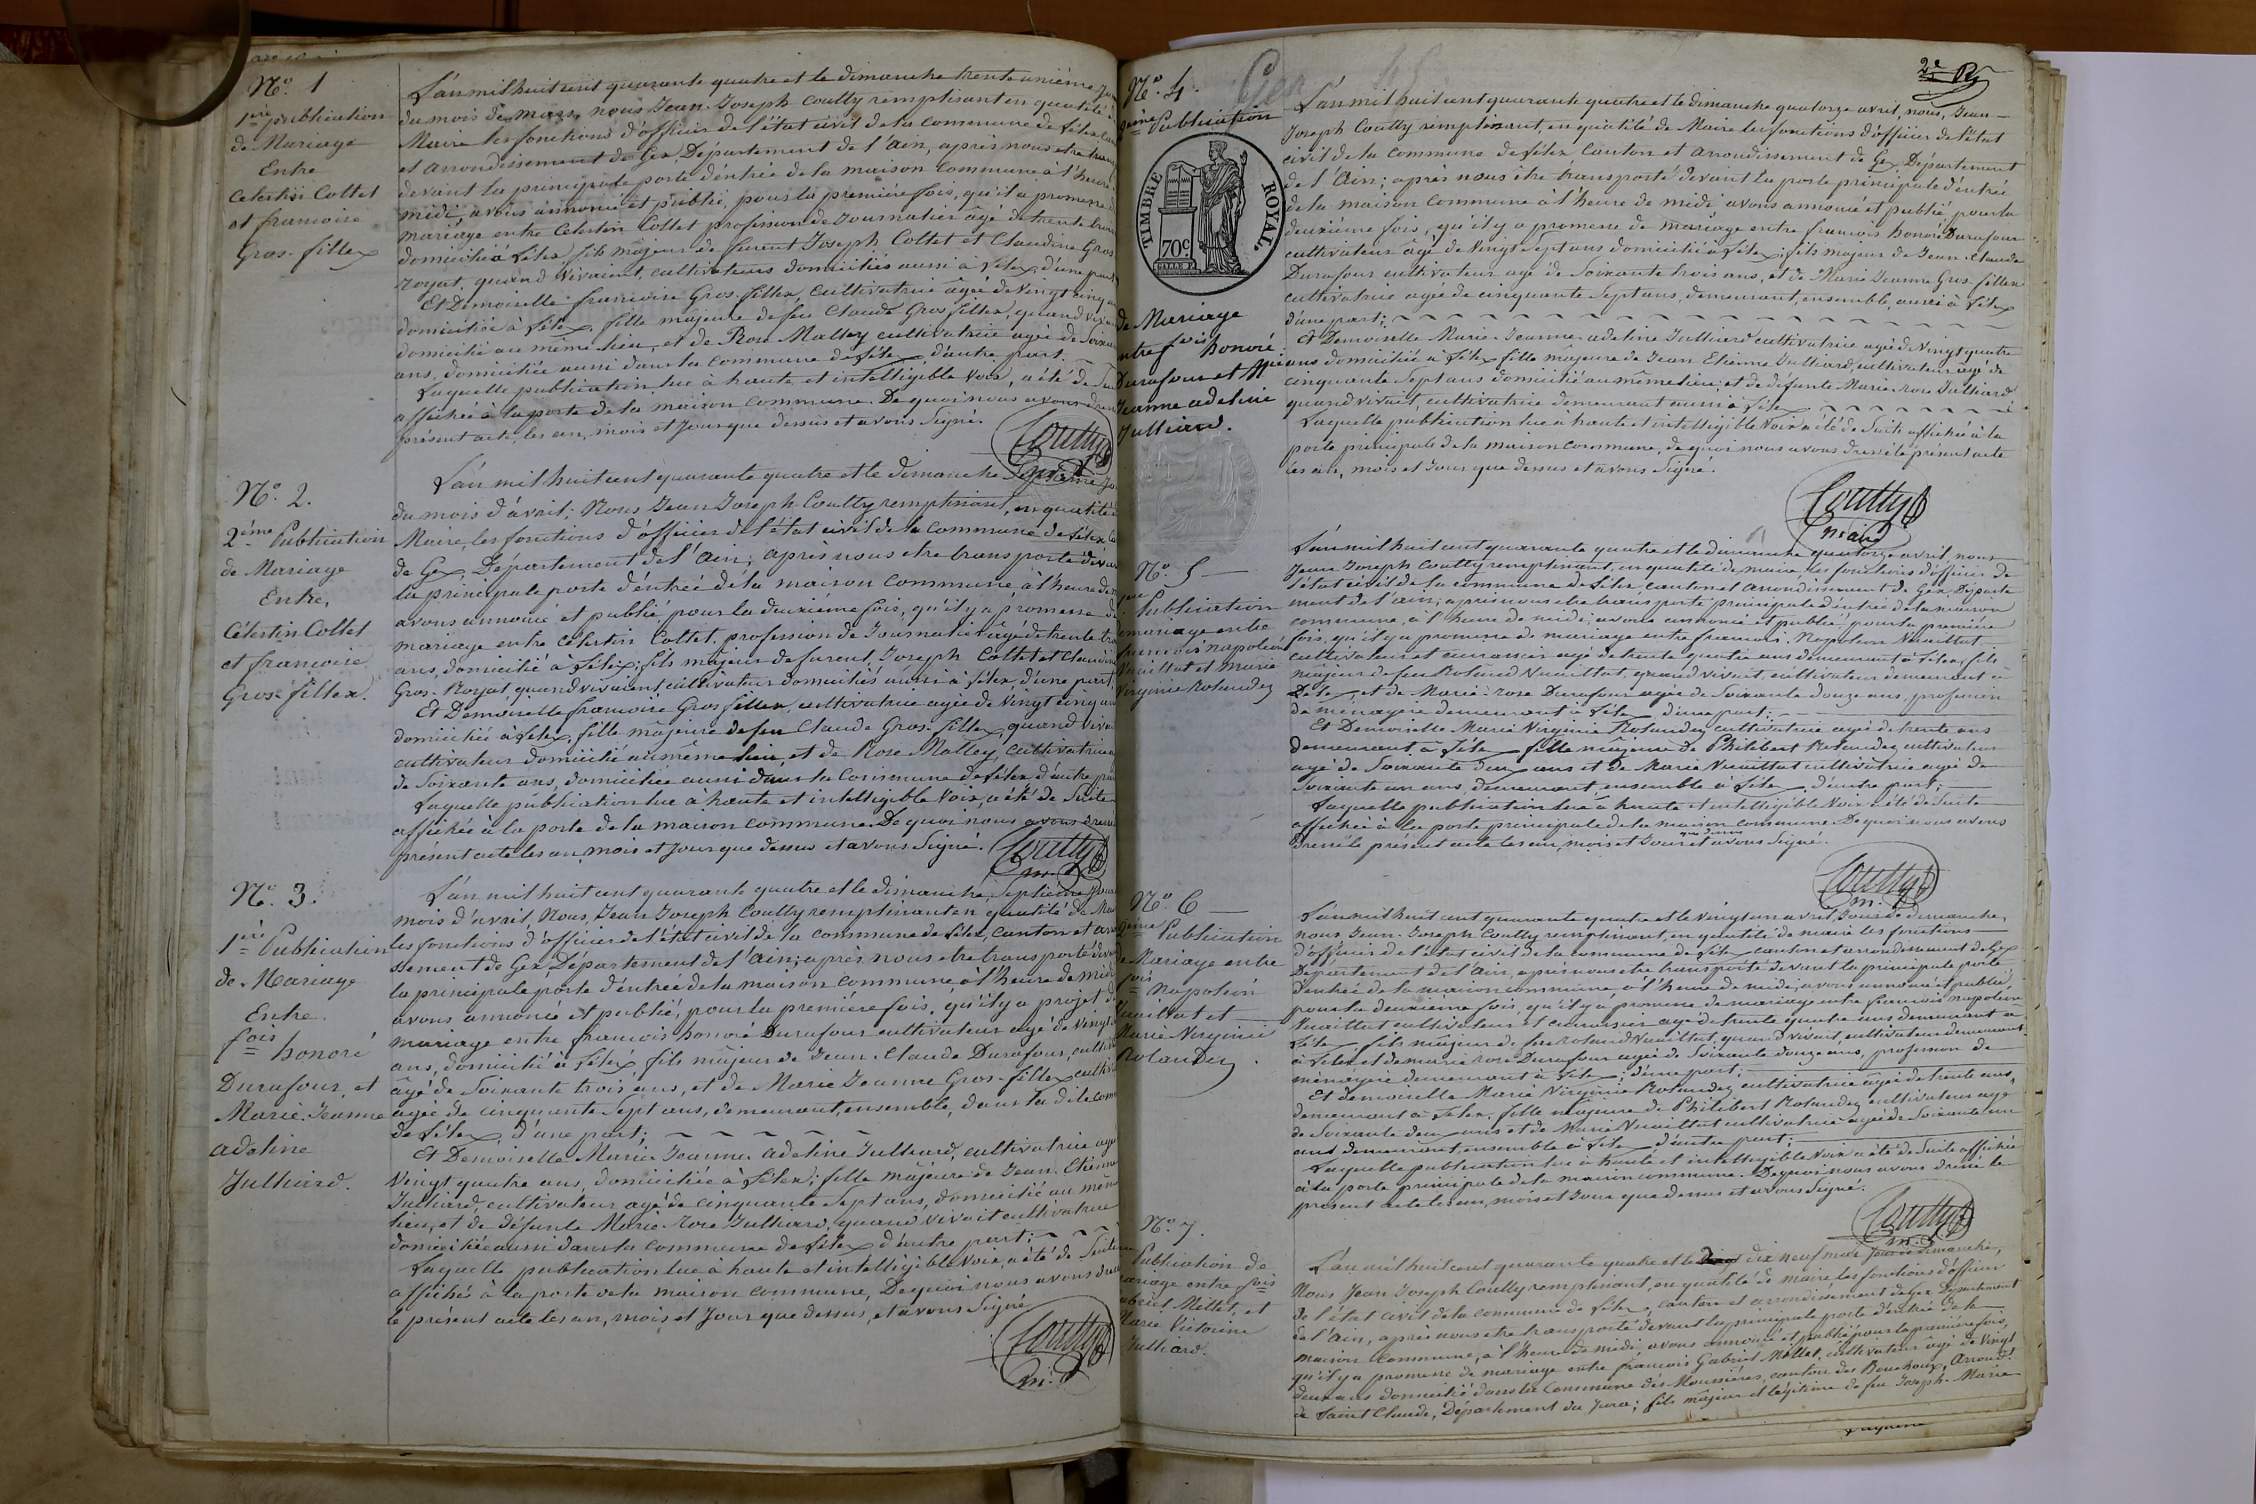 No. 1
1ère publication
de Mariage
Entre
Celestin Collet
et francoise
Gros-fillex
L'an mil huit cent quarante quatre et le dimanche trente unième
du mois de mars, nous Jean-Joseph Coutty remplissant en qualité
Maire les fonctions d'officier de l'état civil de la commune de Lélex
et arrondissement de Gex, Département de l'Ain, après nous etre
devant la principale porte d'entrée de la maison Commune à l'heure
midi, avons annoncé et publié, pour la première fois, qu'il a promesse
mariage entre Celestin Collet profession de Journalier âgé de trente
domicilié à Lélex fils majeur de furent Joseph Collet et Claudine Gros
royat, quand vivaient, cultivateurs domiciliés aussi à Lélex, d'une part
Et Demoiselle francoise Gros-fillex, cultivatrice âgée de Vingt cinq
domiciliée à Lélex, fille majeure de feu Claude Gros fillex, quand
domicilié au même lieu, et de Rose Malley cultivatrice agée de
ans, domiciliée aussi dans la commune de Lélex, d'autre part.
Laquelle publication lue à haute et intelligible voix, a été de
affichée à la porte de la maison commune. De quoi nous avons
présent acte, les an, mois et Jour que dessus et avons Signé.
Coutty
No. 2.
2ème Publication
de Mariage
Entre,
Célestin Collet
et francoise
Gros-fillex.
L'an mil huit cent quarante quatre et le dimanche Septième
du mois d'avril; Nous Jean Joseph Coutty remplissant, en qualité
Maire, les fonctions d'officier de l'état civil de la commune de Lélex
de Gex, Département de l'Ain; après nous etre transporté
la principale porte d'entrée de la maison commune, à l'heure
avons annoncé et publié pour la deuxième fois, qu'il y a promesse
mariage entre Célestin Collet, profession de Journalier âgé de trente
ans, domicilié à Lélex; fils majeur de furent Joseph Collet et
Gros-Royat quand vivaient, cultivateurs domiciliés aussi à Lélex d'une part
Et Demoiselle francoise Gros fillex, cultivatrice agée de Vingt cinq
domiciliée à Lélex, fille majeure de feu Claude Gros-fillex, quand
cultivateur domicilié au même lieu, et de Rose Malley cultivatrice
de Soixante ans, domiciliée aussi dans la commune de Lélex d'autre
Laquelle publication lue à haute et intelligible Voix, a été de Suite
affichée à la porte de la maison commune. De quoi nous avons
présent acte les an, mois et Jour que dessus et avons Signé.
Coutty
No. 3.
1ère Publication
de Mariage
Entre
fois honoré
Durafour, et
Marie-Jeanne
adeline
Julliard.
L'an mil huit cent quarante quatre et le dimanche, Septième
mois d'avril, Nous, Jean Joseph Coutty remplissant en qualité de
les fonctions d'officier de l'état civil de la commune de Lélex, canton et
ssement de Gex Département de l'Ain; après nous etre transporté
la principale porte d'entrée de la maison commune à l'heure de
avons annoncé et publié, pour la première fois, qu'il y a projet
mariage entre francois honoré Durafour cultivateur agé de vingt
ans, domicilié à Lélex fils majeur de Jean-Claude Durafour,
âgé de Soixante trois ans, et de Marie Jeanne Gros-fillex
agée de cinquante Sept ans, demeurant, ensemble, dans la dite
de Lélex, d'une part;
Et Demoiselle Marie Jeanne adeline Julliard, cultivatrice
Vingt quatre ans, domiciliée à Lélex; fille majeure de Jean-Etienne
Julliard, cultivateur agé de cinquante Sept ans, domicilié au même
lieu, et de défunte Marie-rose Julliard, quand vivait cultivatrice
domiciliée aussi dans la commune de Lélex d'autre part;
Laquelle publication lue à haute et intelligible Voix, a été de Suite
affichée à la porte de la maison commune, De quoi nous avons
le présent acte les an, mois et Jour que dessus, et avons Signé
Coutty
No. 4.
Gex
2e
2ème Publication
TIMBRE ROYAL
70c.
de Mariage
fois honoré
Durafour et
Jeanne adeline
Julliard.
L'an mil huit cent quarante quatre et le dimanche quatorze avril, nous, Jean-
Joseph Coutty remplissant, en qualité de Maire les fonctions d'officier de l'état
civil de la commune de Lélex, Canton et arrondissement de Gex, Département
de l'Ain; après nous etre transporté devant la porte principale d'entrée
de la maison commune à l'heure de midi avons annoncé et publié, pour la
deuxième fois, qu'il y a promesse de mariage entre francois honoré Durafour
cultivateur âgé de Vingt Sept ans domicilié à Lélex; fils majeur de Jean-Claude
Durafour cultivateur agé de Soixante trois ans, et de Marie Jeanne Gros-fillex
cultivatrice agée de cinquante Sept ans, demeurant, ensemble, aussi à Lélex
d'une part;
Et Demoiselle Marie-Jeanne-adeline Julliard cultivatrice agée de Vingt quatre
ans domiciliée à Lélex fille majeure de Jean Etienne Julliard, cultivateur agé de
cinquante Sept ans domicilié au même lieu; et de défunte Marie-rose Julliard
quand vivait, cultivatrice demeurant aussi à Lélex
Laquelle publication lue à haute et intelligible Voix a été de Suite affichée à la
porte principale de la maison commune, de quoi nous avons dressé le présent acte
les an, mois et Jour que dessus et avons Signé.
Coutty
No. 5
Publication
mariage entre
francois napoléon
Vuaillat et Marie
Virginie Rolandez
L'an mil huit cent quarante quatre et le dimanche quatorze avril, nous
Jean Joseph Coutty remplissant, en qualité de maire, les fonctions d'officier de
l'état civil de la commune de Lélex, canton et arrondissement de Gex, Départe
ment de l'ain; après nous etre transporté principale d'entrée de la maison
commune, à l'heure de midi, avons annoncé et publié, pour la première
fois, qu'il y a promesse de mariage entre francois Napoléon Vuaillat
cultivateur et agé de trente quatre ans demeurant à Lélex, fils
majeur de feu Roland Vuaillat, quand vivait, cultivateur demeurant à
Lélex, et de Marie-rose Durafour agée de Soixante douze ans, profession
de ménagère demeurant à Lélex d'une part;
Et Demoiselle Marie Virginie Rolandez cultivatrice agée de trente ans
demeurant à Lélex fille majeure de Philibert Rolandez cultivateur
agé de Soixante deux ans et de Marie Vuaillat cultivatrice agée de
Soixante un ans, demeurant, ensemble à Lélex d'autre part;
Laquelle publication lue à haute et intelligible Voix a été de Suite
affichée à la porte principale de la maison commune De quoi nous avons
dressé le présent acte les an, mois et Jour que dessus et avons Signé.
Coutty
No. 6
2ème Publication
Mariage entre
fois Napoléon
Vuaillat et
Marie Virginie
Rolandez
L'an mil huit cent quarante quatre et le Vingt un avril, Jour de dimanche,
nous Jean-Joseph Coutty remplissant, en qualité de maire les fonctions
d'officier de l'état civil de la commune de Lélex canton et arrondissement de Gex
Département de l'Ain, après nous etre transporté devant la principale porte
d'entrée de la maison commune à l'heure de midi, avons annoncé et publié,
pour la deuxième fois, qu'il y a promesse de mariage entre francois napoléon
Vuaillat cultivateur et agé de trente quatre ans demeurant à
Lélex, fils majeur de feu roland Vuaillat, quand vivait, cultivateur demeurant
à Lélex et de marie rose Durafour agée de Soixante douze ans, profession de
ménagère demeurant à Lélex; d'une part;
Et demoiselle Marie Virginie Rolandez cultivatrice agée de trente ans,
demeurant à Lélex, fille majeure de Philibert Rolandez cultivateur agé
de Soixante deux ans et de Marie Vuaillat cultivatrice agée de Soixante un
ans demeurant, ensemble à Lélex d'autre part;
Laquelle publication lue à haute et intelligible Voix a été de Suite affichée
à la porte principale de la maison commune. De quoi nous avons dressé le
présent acte les an, mois et Jour que dessus et avons Signé.
Coutty
No. 7.
Publication de
mariage entre fois
Gabriel Millet, et
Marie Victorine
Julliard.
L'an mil huit cent quarante quatre et le dix neuf mai Jour de dimanche,
Nous Jean Joseph Coutty remplissant, en qualité de maire les fonctions d'officier
de l'état civil de la commune de Lélex, canton et arrondissement de Gex, Département
de l'Ain, après nous etre transporté devant la principale porte d'entrée de la
maison commune, à l'heure de midi, avons annoncé et publié pour la première fois,
qu'il y a promesse de mariage entre francois Gabriel Millet, cultivateur âgé de Vingt
deux ans domicilié dans la Commune des Moussières, canton des Bouchoux, Arrondt
de Saint Claude, Département du Jura; fils majeur et légitime de feu Joseph-Marie